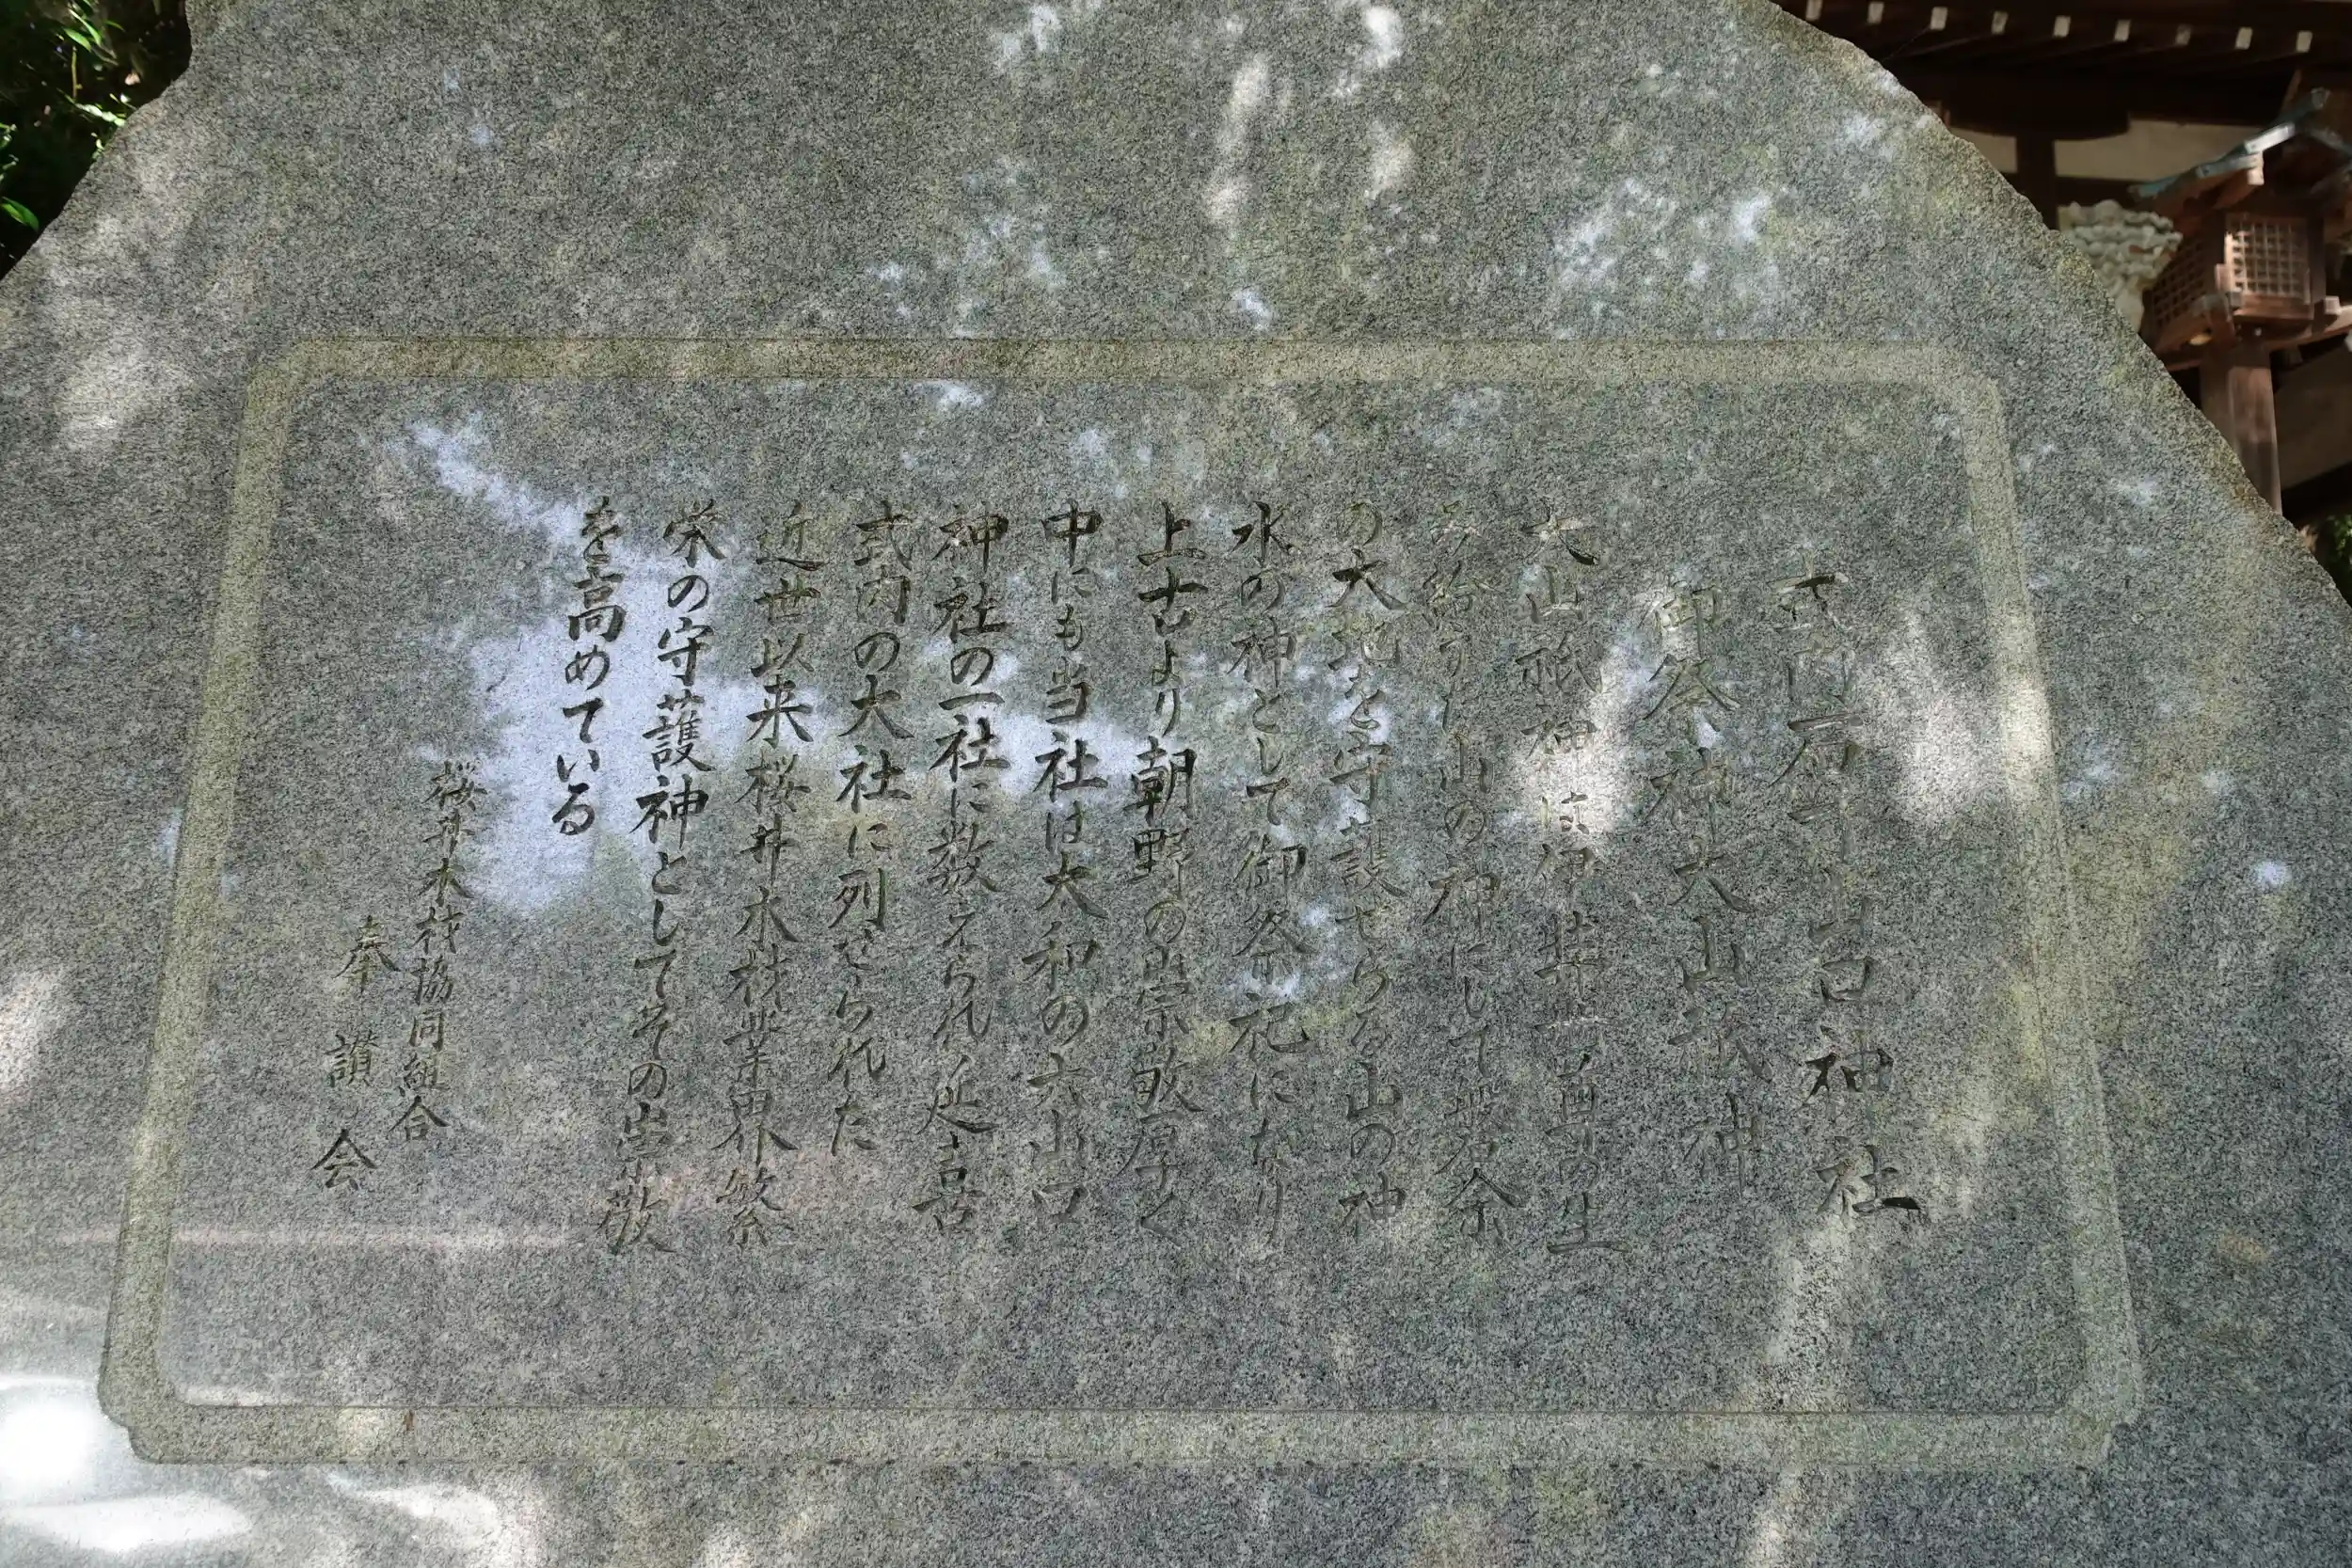 式内石寸山口神社
御祭神大山祇神
大山祇神は伊弉二尊の生
み給ひし山の神にして
の大地を守護せらる山の神
水の神として御祭祀になり
上古より朝野の崇敬厚く
中にも当社は大和の六山口
神社の一社に数えられ延喜
式内の大社に列せられた
近世以来桜井木材業界繁
栄の守護神としてその崇敬
を高めている
桜井木材協同組合
奉讃会